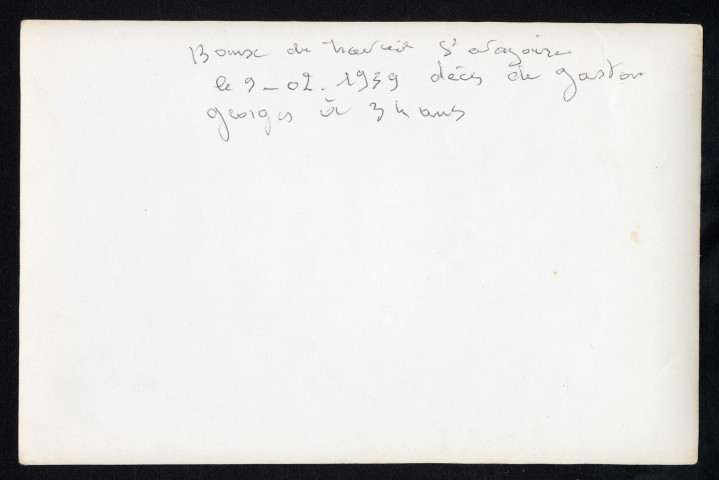 Bourse de travail St nazaire
le 9-02.1939 décès de gaston
georges à 34 ans